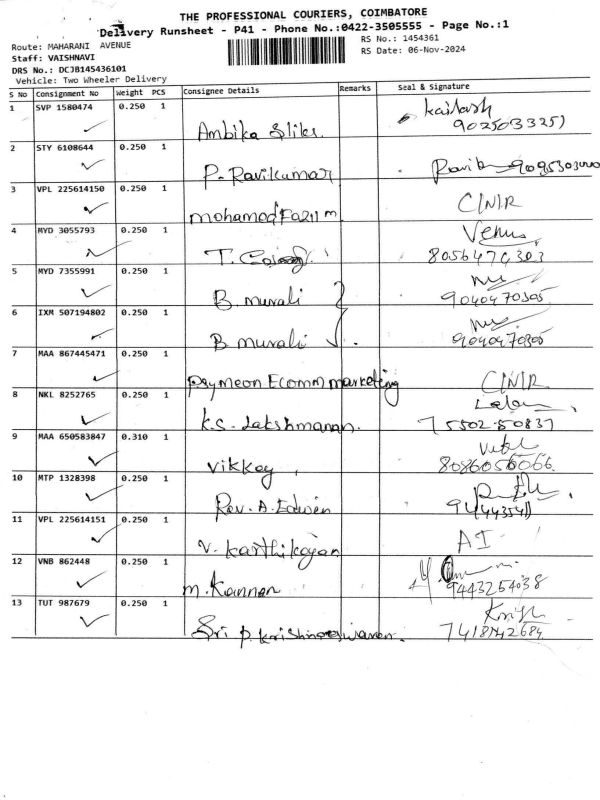 THE PROFESSIONAL COURIERS, COIMBATORE
Delivery Runsheet - P41 - Phone No.:0422-3505555 - Page No.:1
Route: MAHARANI AVENUE
RS No.: 1454361
Staff: VAISHNAVI
RS Date: 06-Nov-2024
DRS No.: DCJB145436101
Vehicle: Two Wheeler Delivery
S No Consignment No Weight PCS Consignee Details Remarks Seal & Signature
1 SVP 1580474 0.250 1 Kailash
Ambika 9025033251
2 STY 6108644 0.250 1
P. Ravikumar
3 VPL 225614150 0.250 1 C/N/R
Mohamod Fazil m
4 MYD 3055793 0.250 1 Venus
T. 8056470303
5 MYD 7355991 0.250 1
B. murali 9040470305
6 IXM 507194802 0.250 1
B murali 9040470305
7 MAA 867445471 0.250 1
Paymeon Ecomm marketing C/N/R
8 NKL 8252765 0.250 1
K.S. Lakshmanan. 75502-50837
9 MAA 650583847 0.310 1
Vikkey 8086056066
10 MTP 1328398 0.250 1
Rev. A. Edwin
11 VPL 225614151 0.250 1 AI
V. Karthikeyan
12 VNB 862448 0.250 1
M. Kannan 9443254038
13 TUT 987679 0.250 1
Sri P. Krishnaeswaran. 7418742684